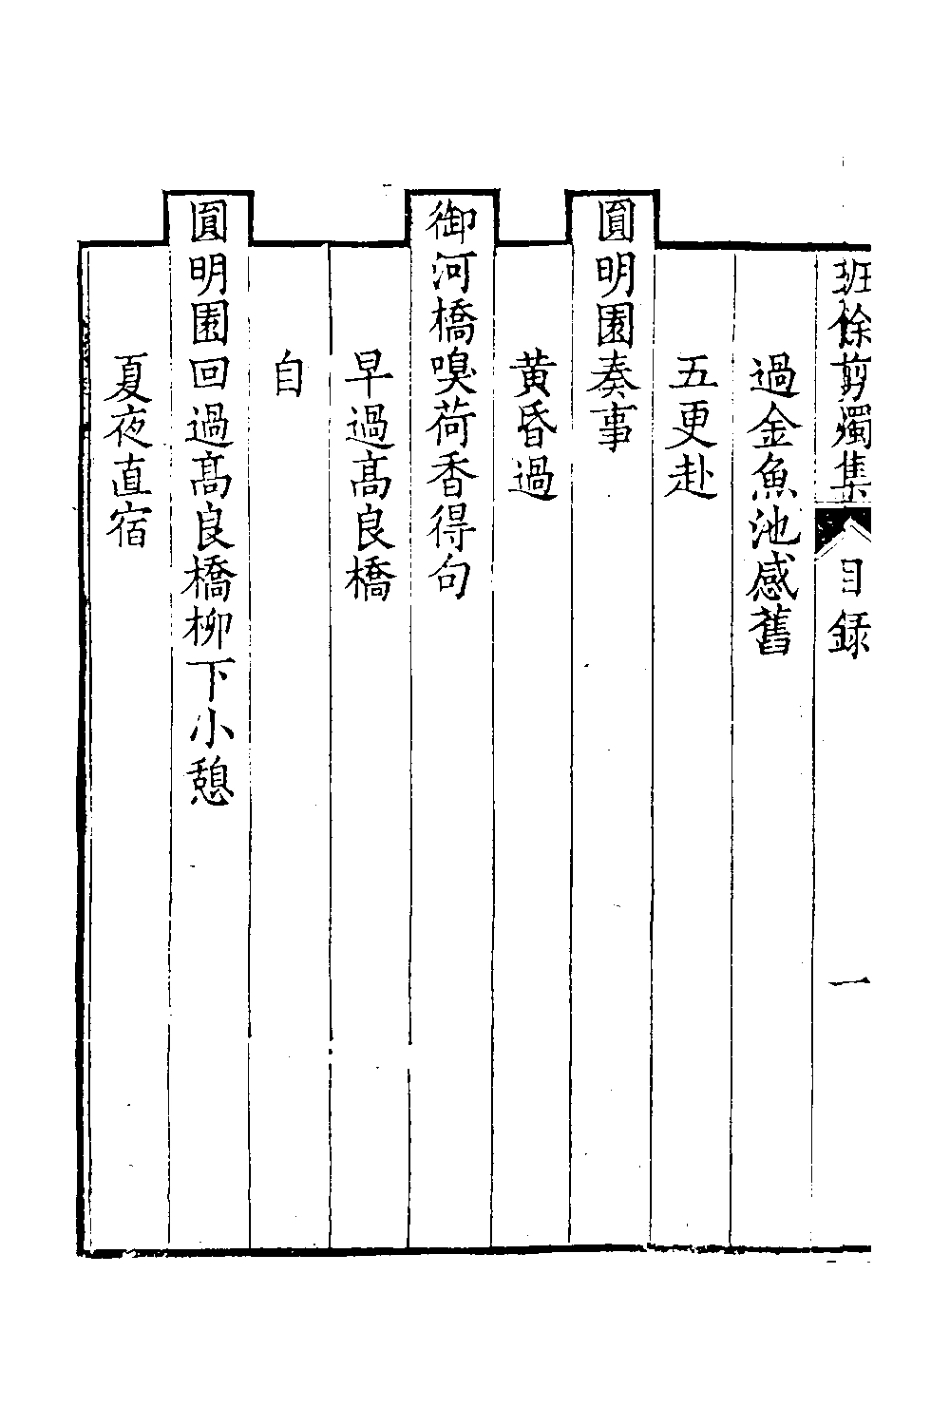 班餘剪燭集 目録 一
過金魚池感舊
五更赴
圓明園奏事
黄昏過
御河橋嗅荷香得句
早過高良橋
自
圓明園回過高良橋柳下小憩
夏夜直宿